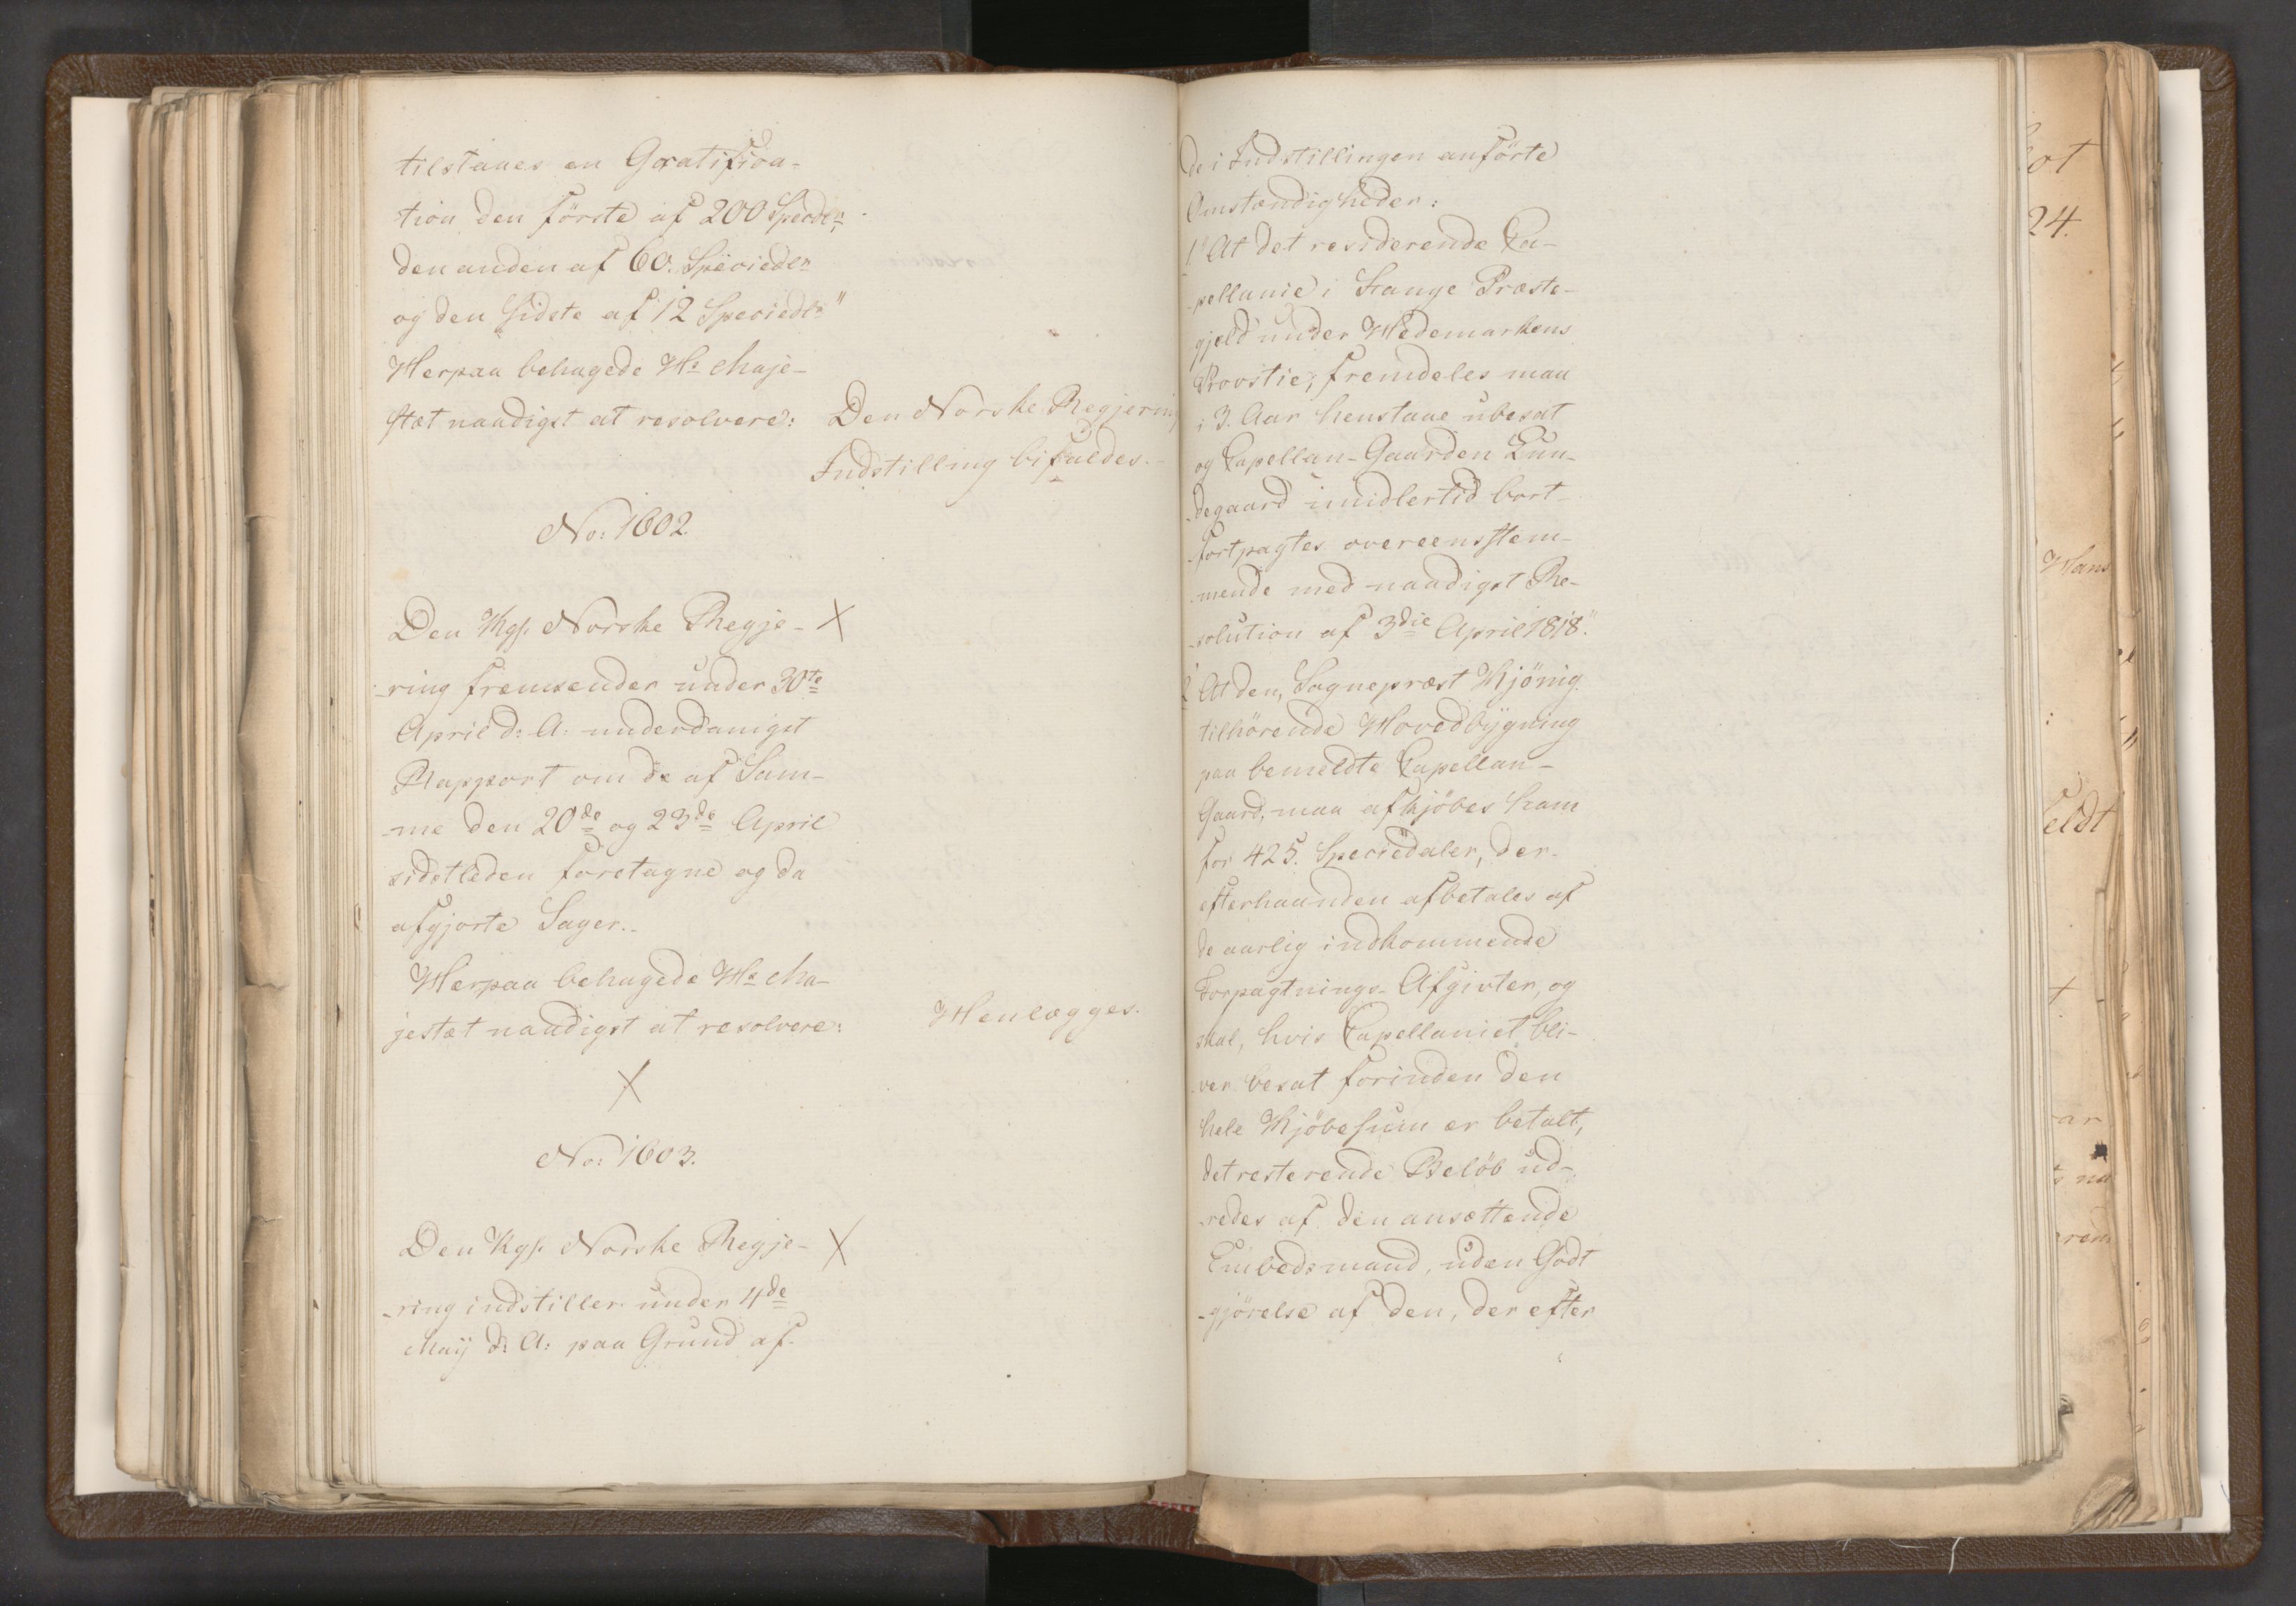 tilstaaes en Gratifica-
tion den förste af 200 Specdlr,
den anden af 60. Speciedlr
og den sidste af 12 Speciedlr"
Herpaa behagede Hs Maje-
stæt naadigst at resolvere:
Den Norske Regjering
Indstilling bifaldes.
No: 1602.
Den Kgs. Norske Regje-
-ring fremsender under 30te
April d: A: underdanigst
Rapport om de af Sam-
-me den 20de og 23de April
sidstleden foretagne og da
afgjorte Sager.
Herpaa behagede Hs Ma-
jestæt naadigst at resolvere:
Henlægges.
No: 1603.
Den Kgs. Norske Regje-
-ring indstiller under 4de
Maij d: A: paa Grund af
de i Indstillingen anförte
Omstændigheder:
1° At det residerende Ca-
-pellanie i Stange Præste-
gjeld under Hedemarkens
Provstie, fremdeles maa
i 3. Aar henstaae ubesat
og Capellan-Gaarden Lun-
-degaard imidlertid bort-
-fortpagtes overeenstem-
-mende med naadigst Re-
-solution af 3die April 1818."
2° At den, Sognepræst Kjönig
tilhörende Hovedbÿgning
paa bemeldte Capellan-
Gaard, maa afkjöbes ham
for 425. Speciedaler, der
efterhaanden afbetales af
de aarlig indkommende
Forpagtnings-Afgivter, og
skal, hvis Capellaniet bli-
ver besat forinden den
hele Kjöbesum er betalt,
det resterende Belöb ud-
-redes af den ansættende
Embedsmand, uden Godt
-gjörelse af den, der efter
24.
Hans